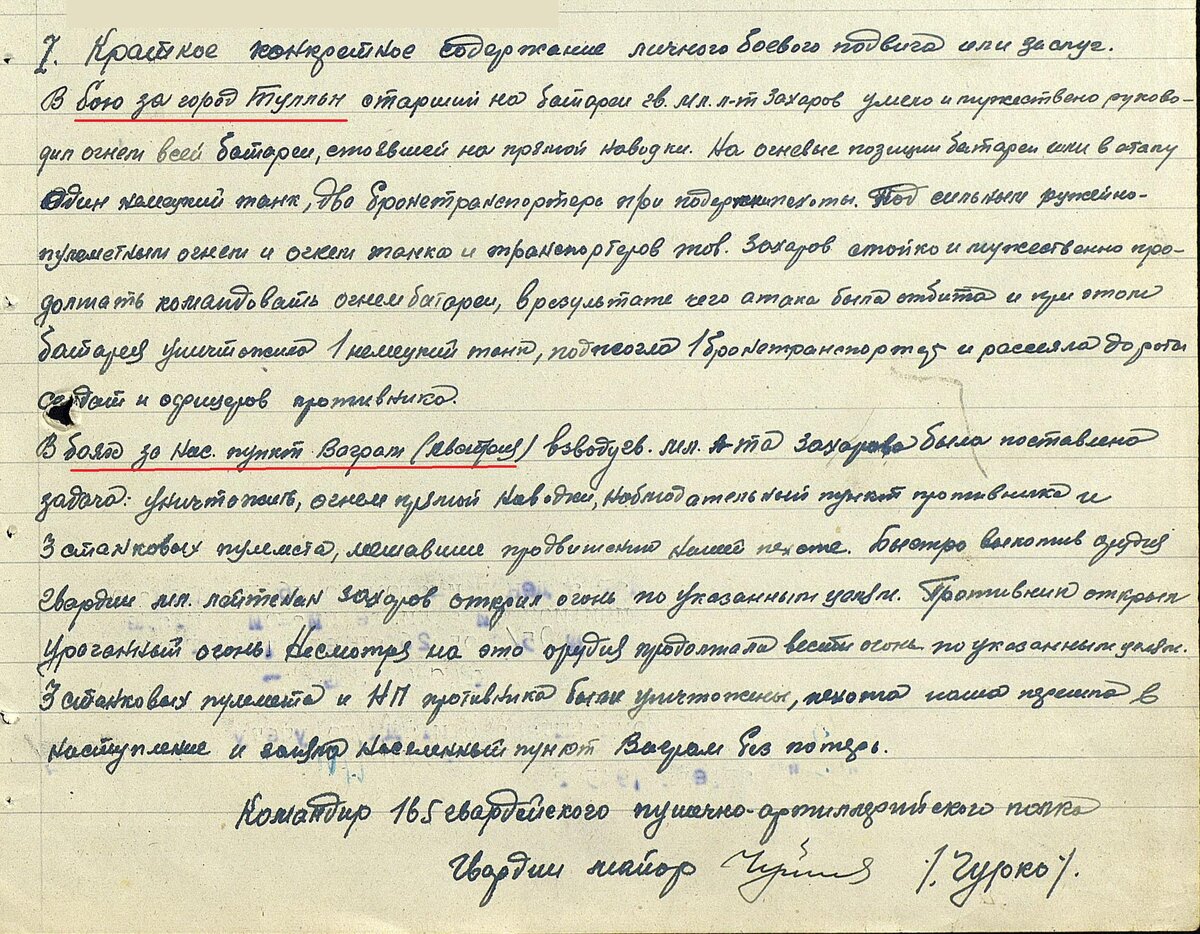 I. Краткое конкретное содержание личного боевого подвига или заслуг.
В бою за город Тулльн старший на батареи гв. мл. л-т Захаров умело и мужествено руково-
дил огнем всей батареи, стоявшей на прямой наводки. На огневые позиции батареи шли в атаку
один немецкий танк, два бронетранспортера при подержки пехоты. Под сильным ружейно-
пулеметным огнем и огнем танка и транспортеров тов. Захаров стойко и мужественно про-
должать командовать огнем батареи, в результате чего атака была отбита и при этом
батарея уничтожила 1 немецкий танк, подожгла 1 бронетранспортер и рассеяла до роты
солдат и офицеров противника.
В боях за нас. пункт Ваграм (Австрия) взводу гв. мл. л-та Захарова была поставлена
задача: уничтожить, огнем прямой наводки, наблюдательный пункт противника и
3 станковых пулемета, мешавшие продвижении нашей пехоте. Быстро выкотив орудия
гвардии мл. лейтенан Захаров открил огонь по указанным целям. Противник открыл
ураганный огонь. Несмотря на это орудия продолжала вести огонь по указанным целям.
3 станковых пулемета и НП противника были уничтожены, пехота наша перешла в
наступление и заняла населенный пункт Ваграм без потерь.
Командир 165 гвардейского пушечно-артиллерийского полка
Гвардии майор /Чурко/.